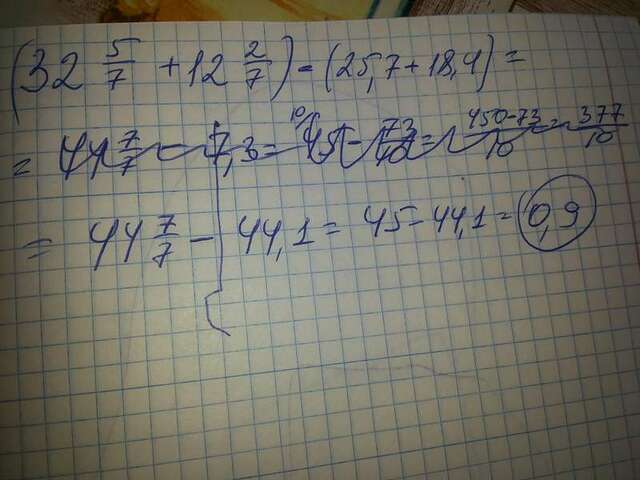 (32 5/7 + 12 2/7) - (25,7 + 18,4) =
= 44 7/7 - 7,3 = 45 - 73/10 = 450-73/10 = 377/10
= 44 7/7 - 44,1 = 45 - 44,1 = 0,9